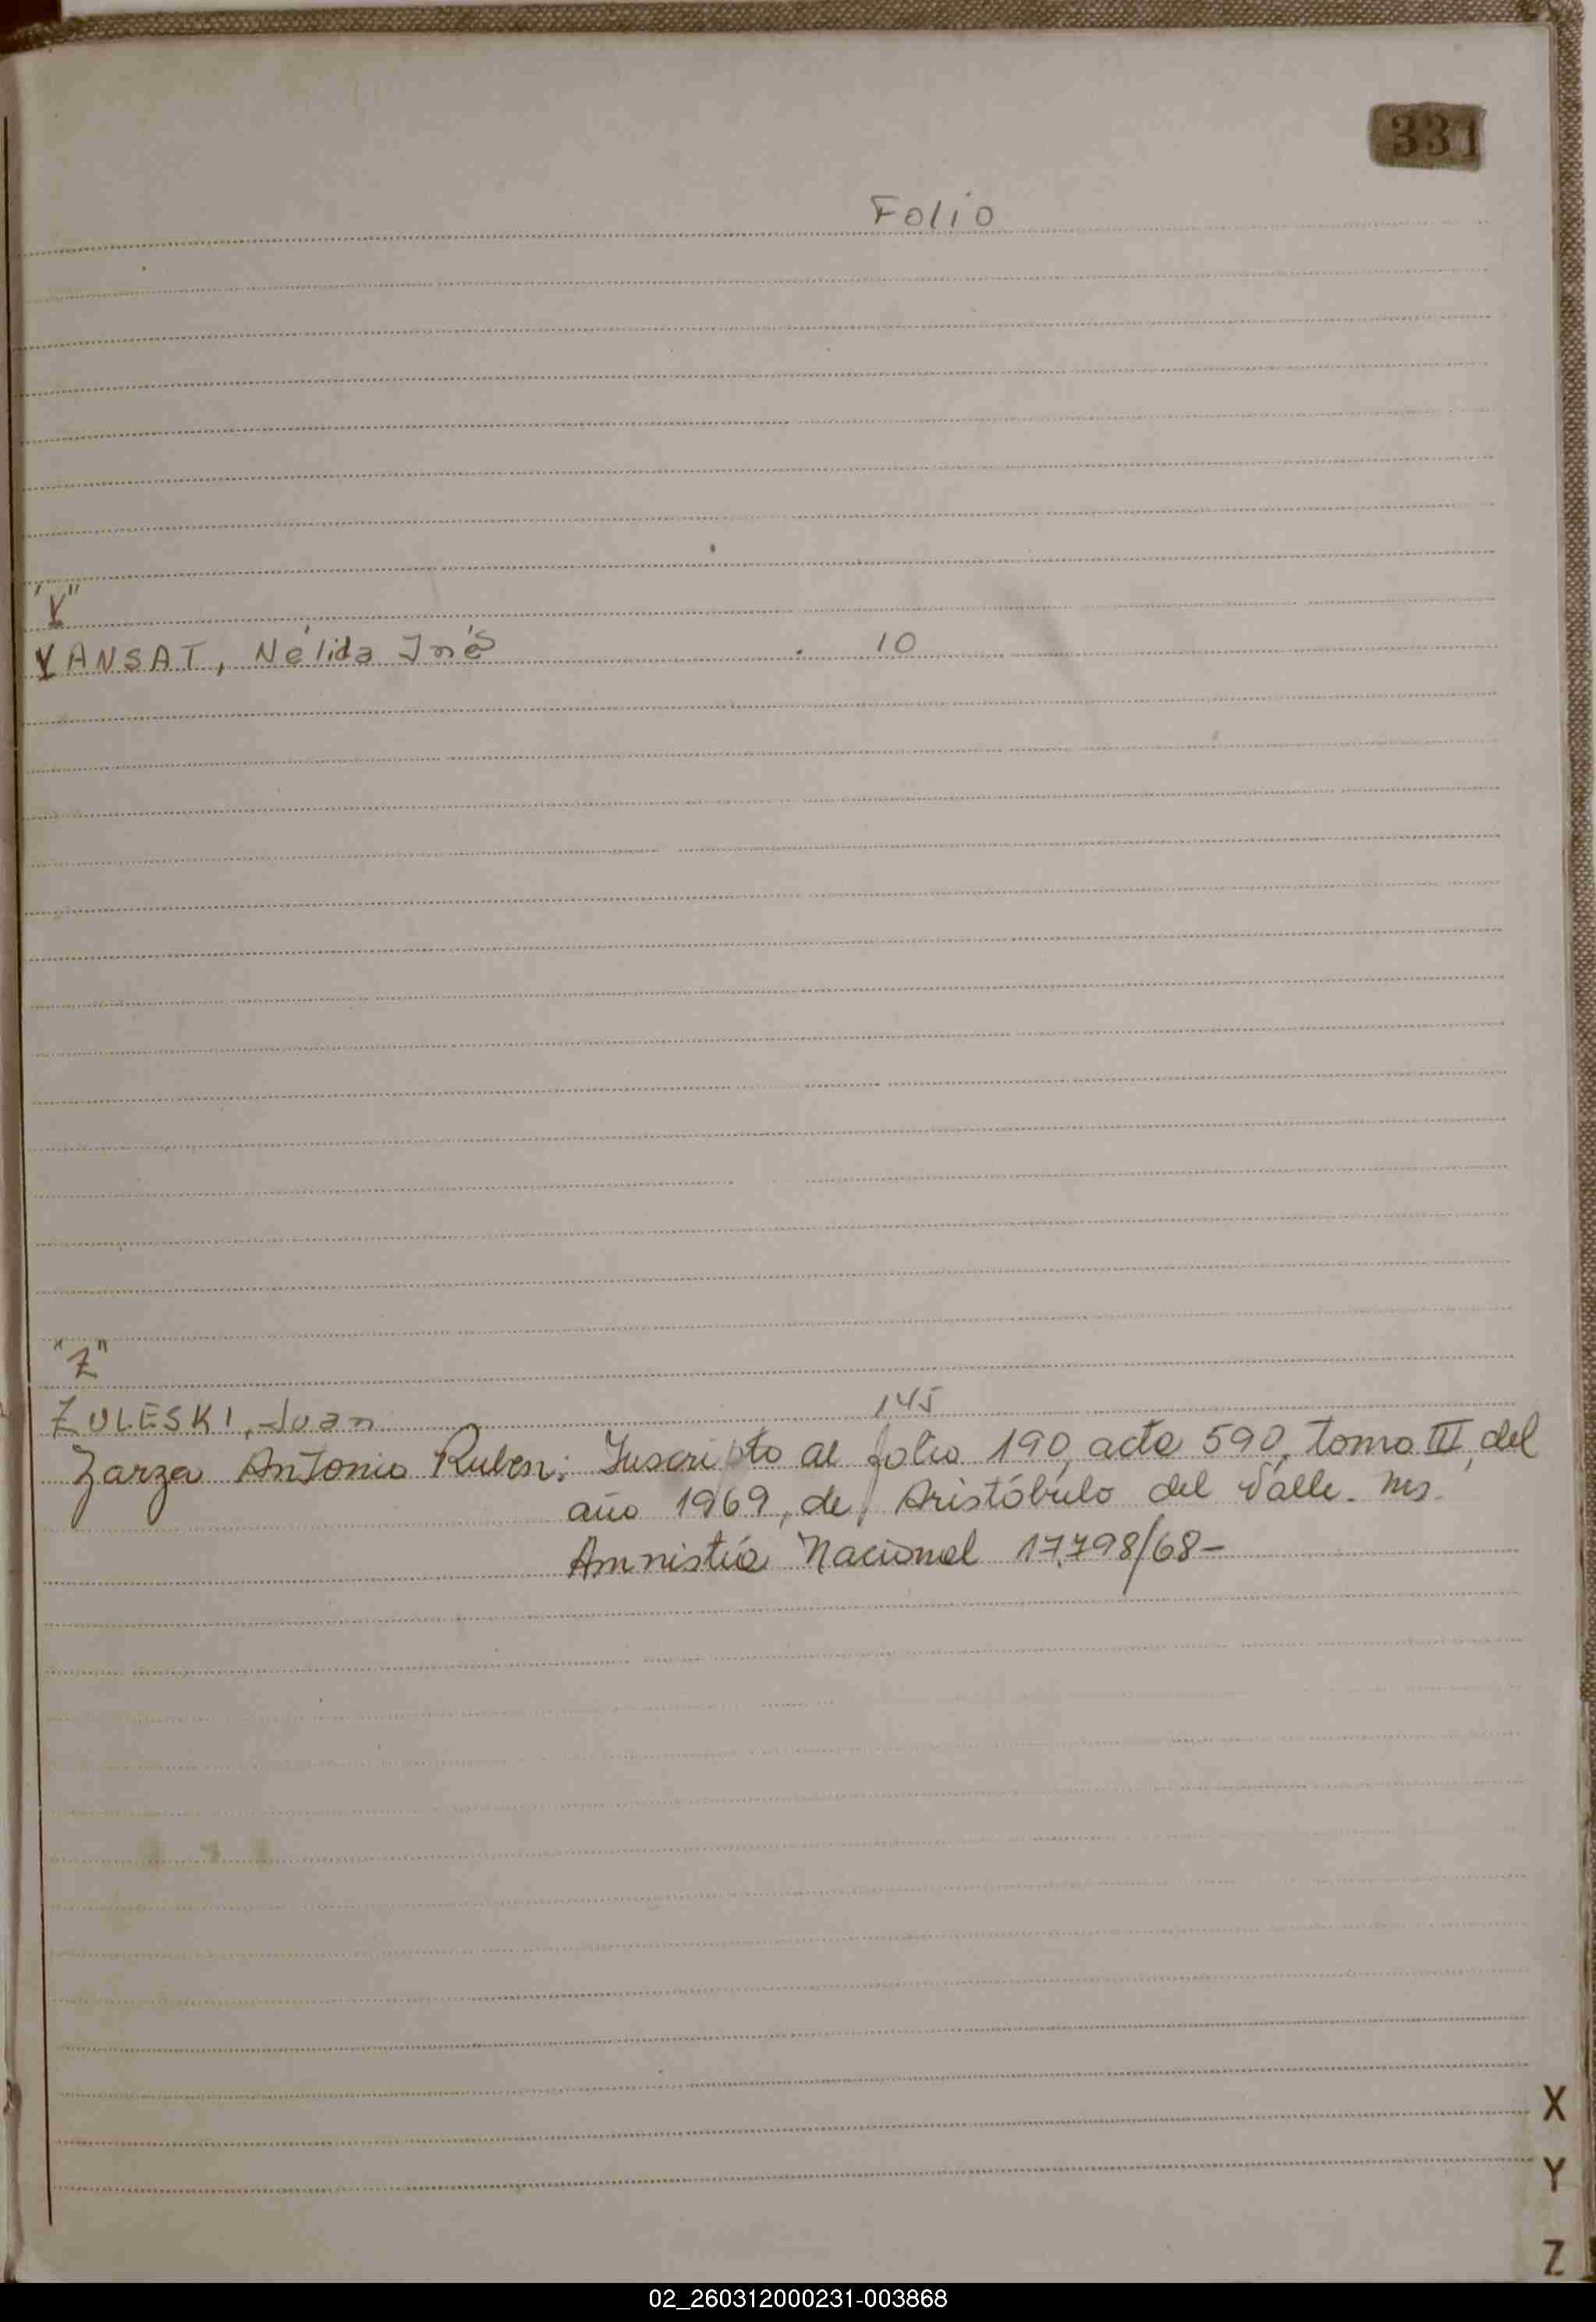 331
Folio
"Y"
YANSAT, Nélida Inés 10
"Z"
ZULESKI, Juan 145
Zarza Antonio Ruben: Inscripto al folio 190, acta 590, tomo III, del
año 1969, de Aristóbulo del Valle. Ms.
Amnistía Nacional 17.798/68-
X
Y
Z
02_260312000231-003868